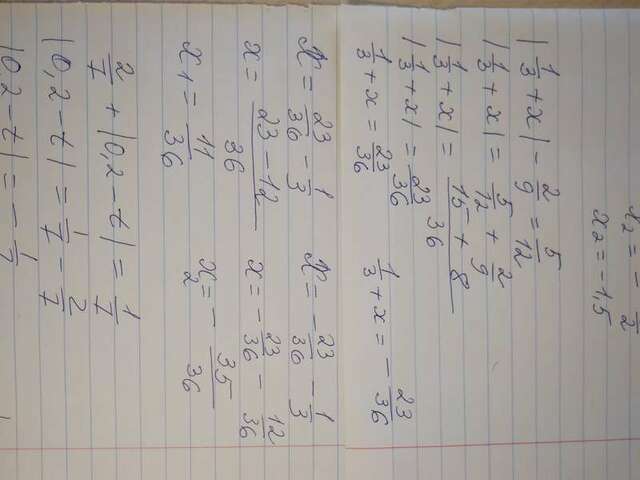 x₂ = - —/2
x₂ = -1,5
|1/3 + x| - 2/9 = 5/12
|1/3 + x| = 5/12 + 2/9
|1/3 + x| = 15 + 8/36
|1/3 + x| = 23/36
1/3 + x = 23/36 1/3 + x = - 23/36
x = 23/36 - 1/3 x = - 23/36 - 1/3
x = 23 - 12/36 x = - 23/36 - 12/36
x₁ = 11/36 x₂ = - 35/36
2/7 + |0,2 - t| = 1/7
|0,2 - t| = 1/7 - 2/7
|0,2 - t| = - 1/7